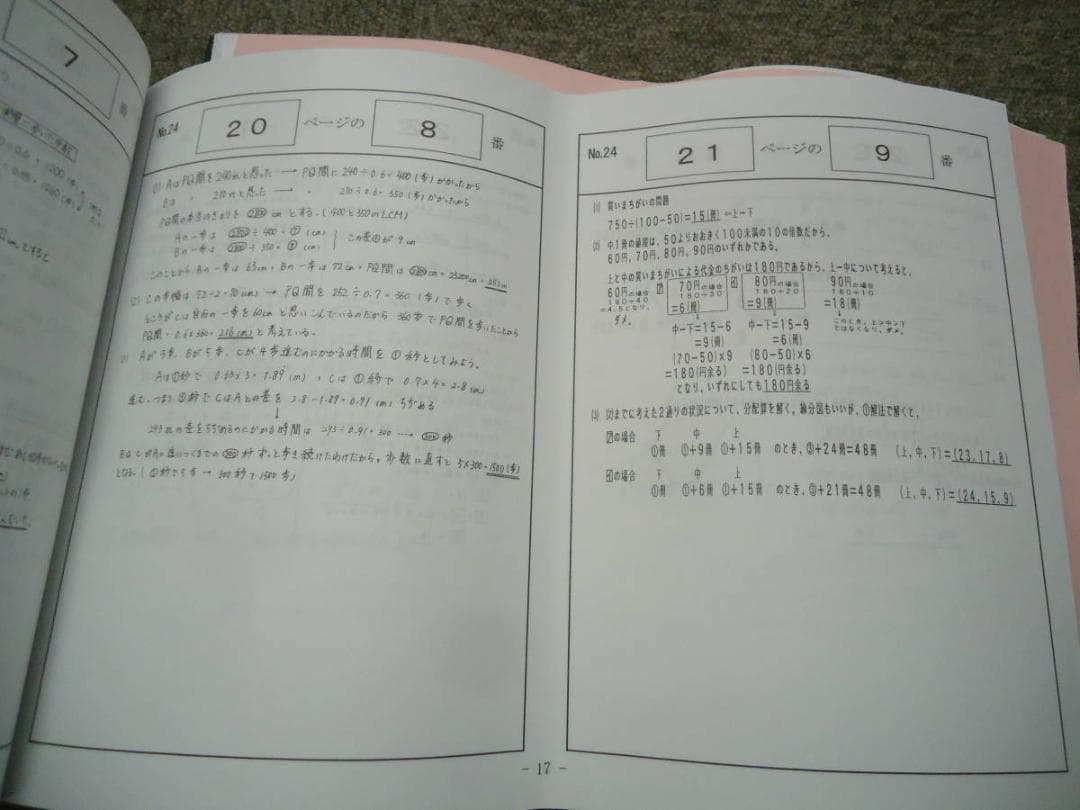 7
番
No.24
20
ページの
8
番
(1) AはPQ間を240mと思った → PQ間に 240÷0.6=400(歩)かかったから
Bは 〃 210mと思った → 〃 210÷0.6=350(歩)かかったから
PQ間の本当のきょりを 2800 とする.(400と350のLCM)
Aの一歩は 2800÷400=⑦(cm)
Bの一歩は 2800÷350=⑧(cm)
この差①が9cm
このことから Aの一歩は63cm・Bの一歩は72cm・PQ間は 2800cm=25200cm=252m
PQ間を 252÷0.7=360(歩)で歩く
ところがCは自分の一歩を60cmと思いこんでいるのだから 360歩でPQ間を歩いたことから
PQ間=0.6×360=216(m)と考えている.
Aが3歩, Bが5歩, Cが4歩進むのにかかる時間を①秒としてみよう。
Aは①秒で 0.63×3=1.89(m), Cは①秒で 0.7×4=2.8(m)
進む. つまり①秒でCはAとの差を 2.8-1.89=0.91(m)ちぢめる
↓
273mの差をちぢめるのにかかる時間は 273÷0.91=300 → 300秒
歩数に直すと 5×300=1500(歩)
となる. (①秒で5歩 → 300秒で1500歩)
No.24
21
ページの
9
番
(1) 買いまちがいの問題
750÷(100-50)=15(冊) ⇐上-下
(2) 中1冊の値段は、50よりおおきく100未満の10の倍数だから、
60円、70円、80円、90円のいずれかである。
上と中の買いまちがいによる代金のちがいは180円であるから、上-中について考えると、
60円の場合 ㋐ 70円の場合 ㋑ 80円の場合 90円の場合
180÷40 180÷30 180÷20 180÷10
=4.5となり、 =6(冊) =9(冊) =18(冊)
ダメ。 ↓ ↓ ↓
このとき、上>中>下
ではなくなり、ダメ。
中-下=15-6 中-下=15-9
=9(冊) =6(冊)
(70-50)×9 (80-50)×6
=180(円余る) =180(円余る)
となり、いずれにしても180円余る
(3) (2)までに考えた2通りの状況について、分配算を解く。線分図もいいが、①解法で解くと、
㋐の場合 下 中 上
①冊 ①+9冊 ①+15冊 のとき、③+24冊=48冊 (上,中,下)=(23,17,8)
㋑の場合 下 中 上
①冊 ①+6冊 ①+15冊 のとき、③+21冊=48冊 (上,中,下)=(24,15,9)
- 17 -